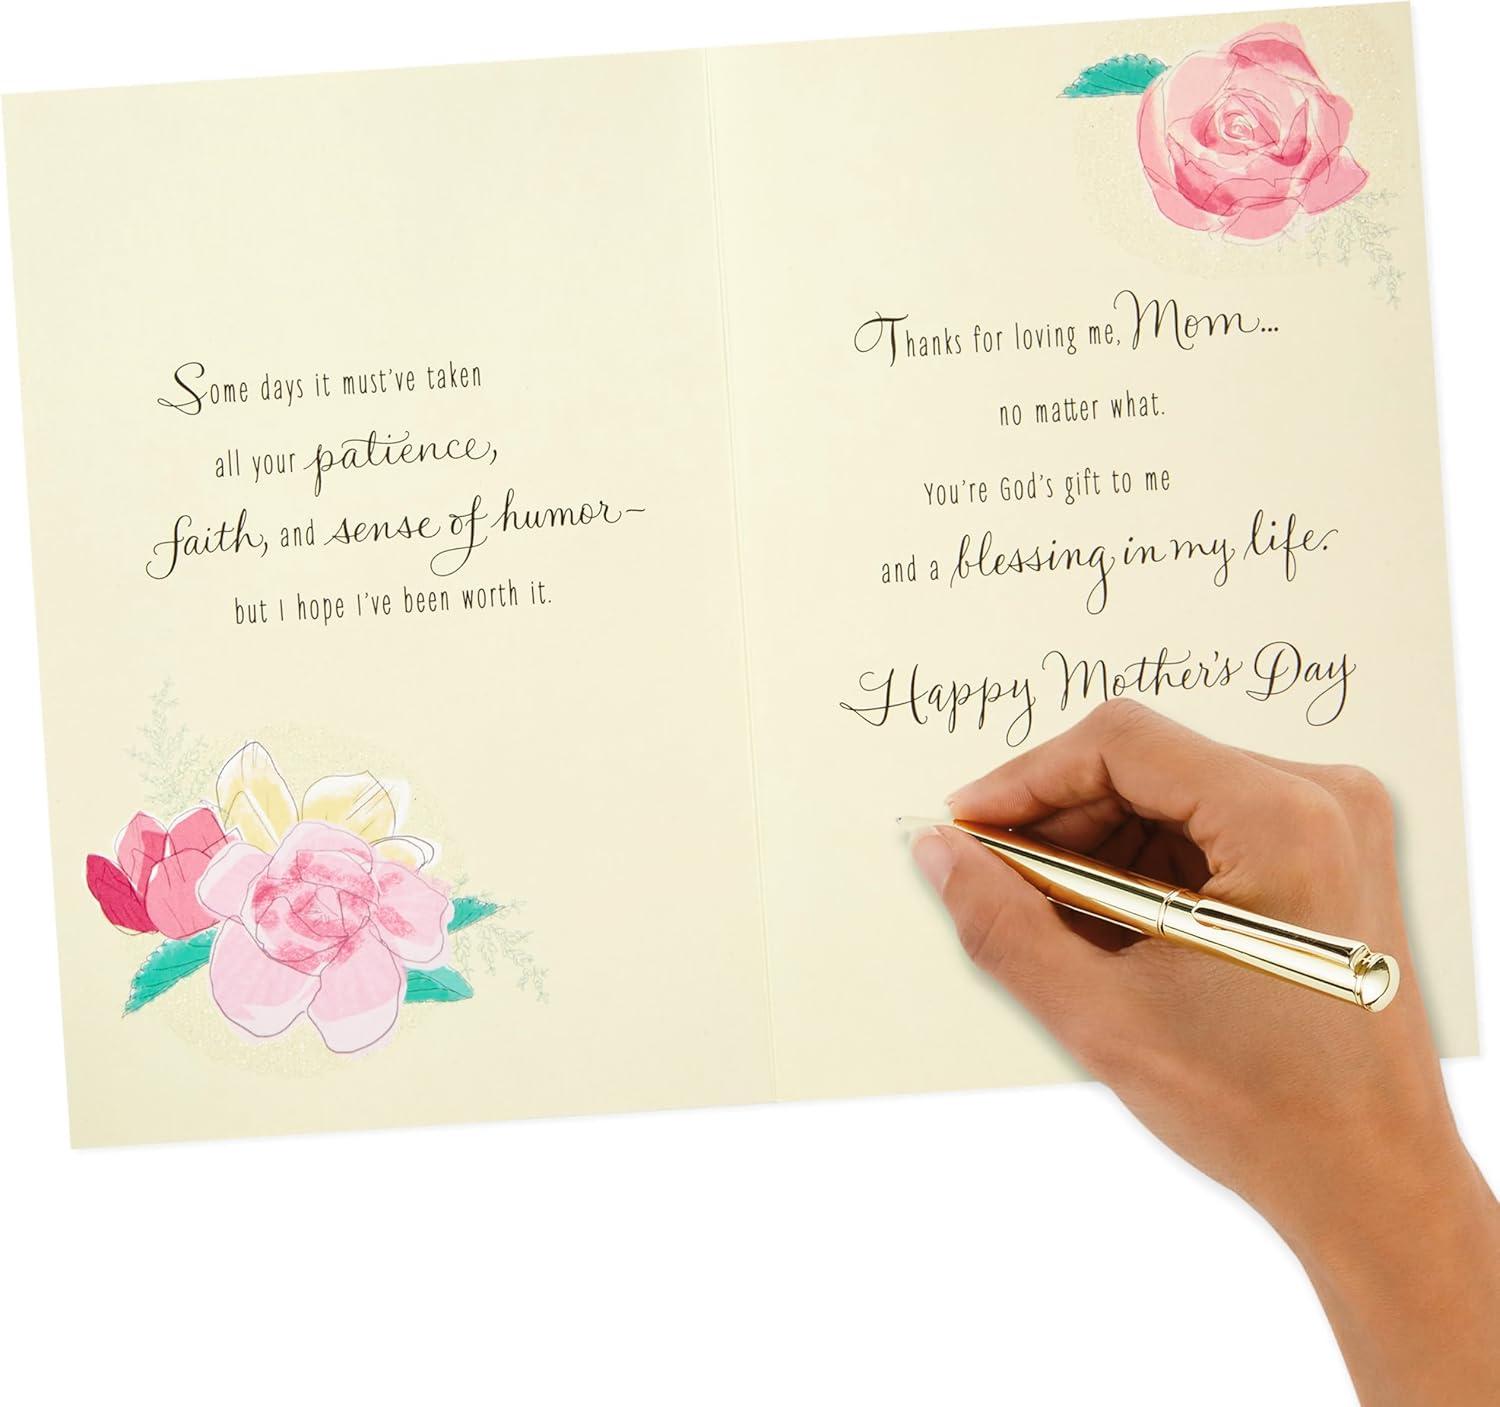 Some days it must've taken
all your patience,
faith, and sense of humor–
but I hope I've been worth it.
Thanks for loving me, Mom...
no matter what.
You're God's gift to me
and a blessing in my life.
Happy Mother's Day